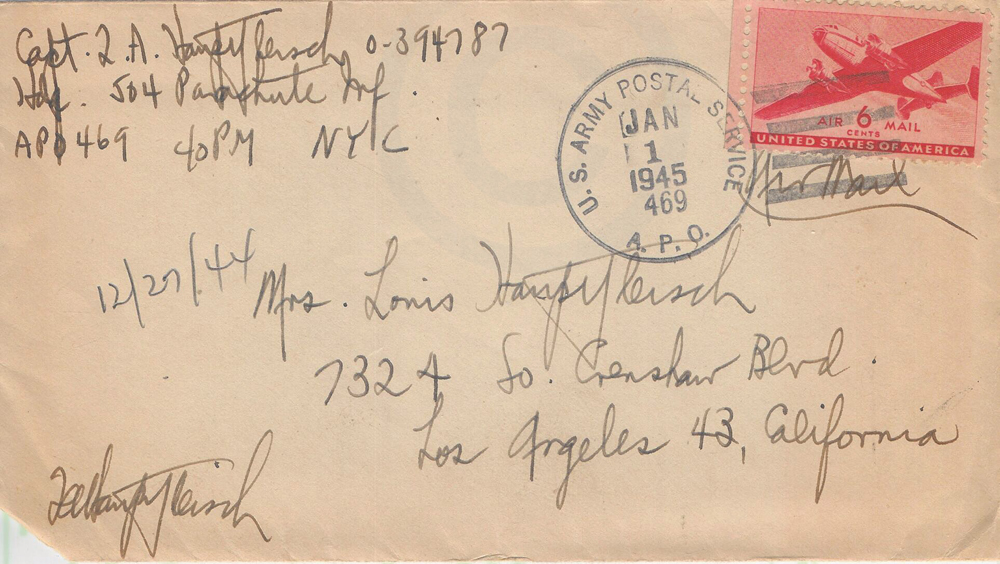 Capt. L. A. Hauptfleisch, O-394787
Hdq. 504 Parachute Inf.
APO 469 ℅ PM NYC
U. S. ARMY POSTAL SERVICE
JAN
1
1945
469
A. P. O.
AIR 6 MAIL
CENTS
UNITED STATES OF AMERICA
Air Mail
12/27/44
Mrs. Louis Hauptfleisch
7324 So. Crenshaw Blvd.
Los Angeles 43, California
LAHauptfleisch